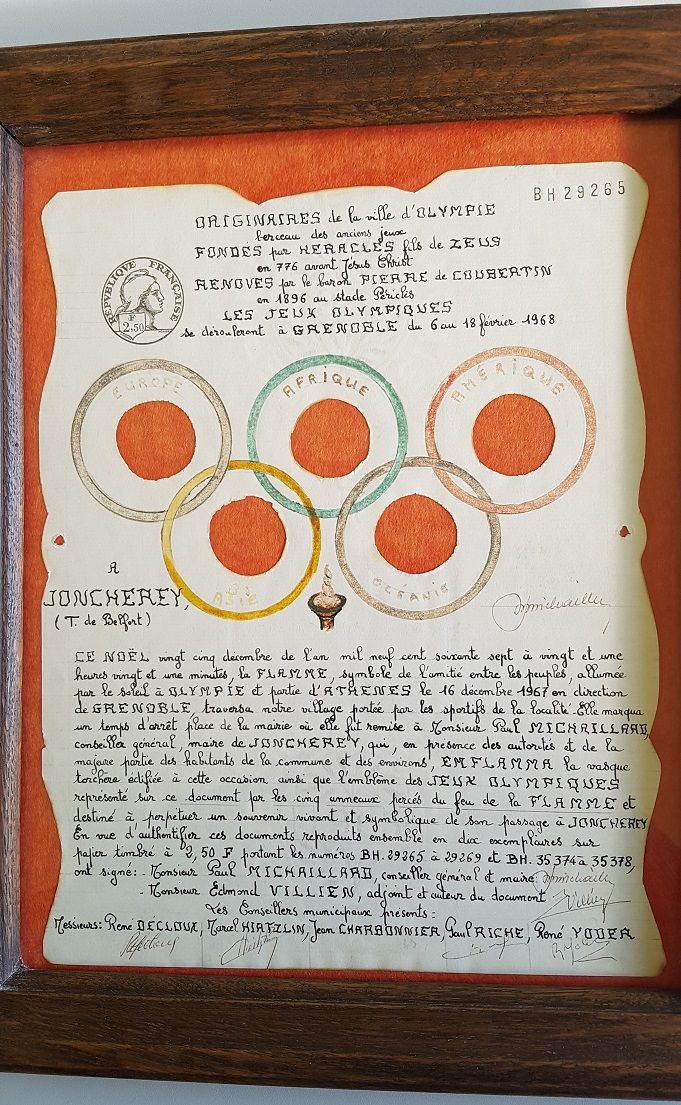 BH 29265
ORIGINAIRES de la ville d'OLYMPIE
berceau des anciens jeux
FONDÉS par HERACLES fils de ZEUS
en 776 avant Jésus Christ
RENOVÉS par le baron PIERRE de COUBERTIN
en 1896 au stade Périclès
LES JEUX OLYMPIQUES
se dérouleront à GRENOBLE du 6 au 18 février 1968
REPVBLIQVE FRANÇAISE
F
2,50
EUROPE
AFRIQUE
AMÉRIQUE
ASIE
OCÉANIE
A
JONCHEREY,
(T. de Belfort)
CE NOËL vingt cinq décembre de l'an mil neuf cent soixante sept à vingt et une
heures vingt et une minutes, la FLAMME, symbole de l'amitié entre les peuples, allumée
par le soleil à OLYMPIE et partie d'ATHENES le 16 décembre 1967 en direction
de GRENOBLE, traversa notre village portée par les sportifs de la localité. Elle marqua
un temps d'arrêt place de la mairie où elle fut remise à Monsieur Paul MICHAILLARD,
conseiller général, maire de JONCHEREY, qui, en présence des autorités et de la
majeure partie des habitants de la commune et des environs, ENFLAMMA la vasque
torchère édifiée à cette occasion ainsi que l'emblême des JEUX OLYMPIQUES
représenté sur ce document par les cinq anneaux percés du feu de la FLAMME et
destiné à perpétuer un souvenir vivant et symbolique de son passage à JONCHEREY
En vue d'authentifier ces documents reproduits ensemble en dix exemplaires sur
papier timbré à 2,50 F portant les numéros BH. 29265 à 29269 et BH. 35374 à 35378,
ont signé: - Monsieur Paul MICHAILLARD, conseiller général et maire
- Monsieur Edmond VILLIEN, adjoint et auteur du document
Les Conseillers municipaux présents :
Messieurs: René DECLOUX, Marcel HIRTZLIN, Jean CHARBONNIER, Paul RICHE, René YODER